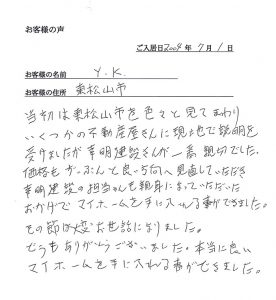 お客様の声
ご入居日2009年7月1日
お客様の名前 Y.K.
お客様の住所 東松山市
当初は東松山市を色々と見てまわり
いくつかの不動産屋さんに現地で説明を
受けましたが幸明建設さんが一番親切でした。
価格もずいぶんと良い方向へ見直していただき
幸明建設の担当さんも親身になっていただいた
おかげでマイホームを手に入れる事ができました。
その節は大変お世話になりました。
どうもありがとうございました。本当に良い
マイホームを手に入れる事ができました。